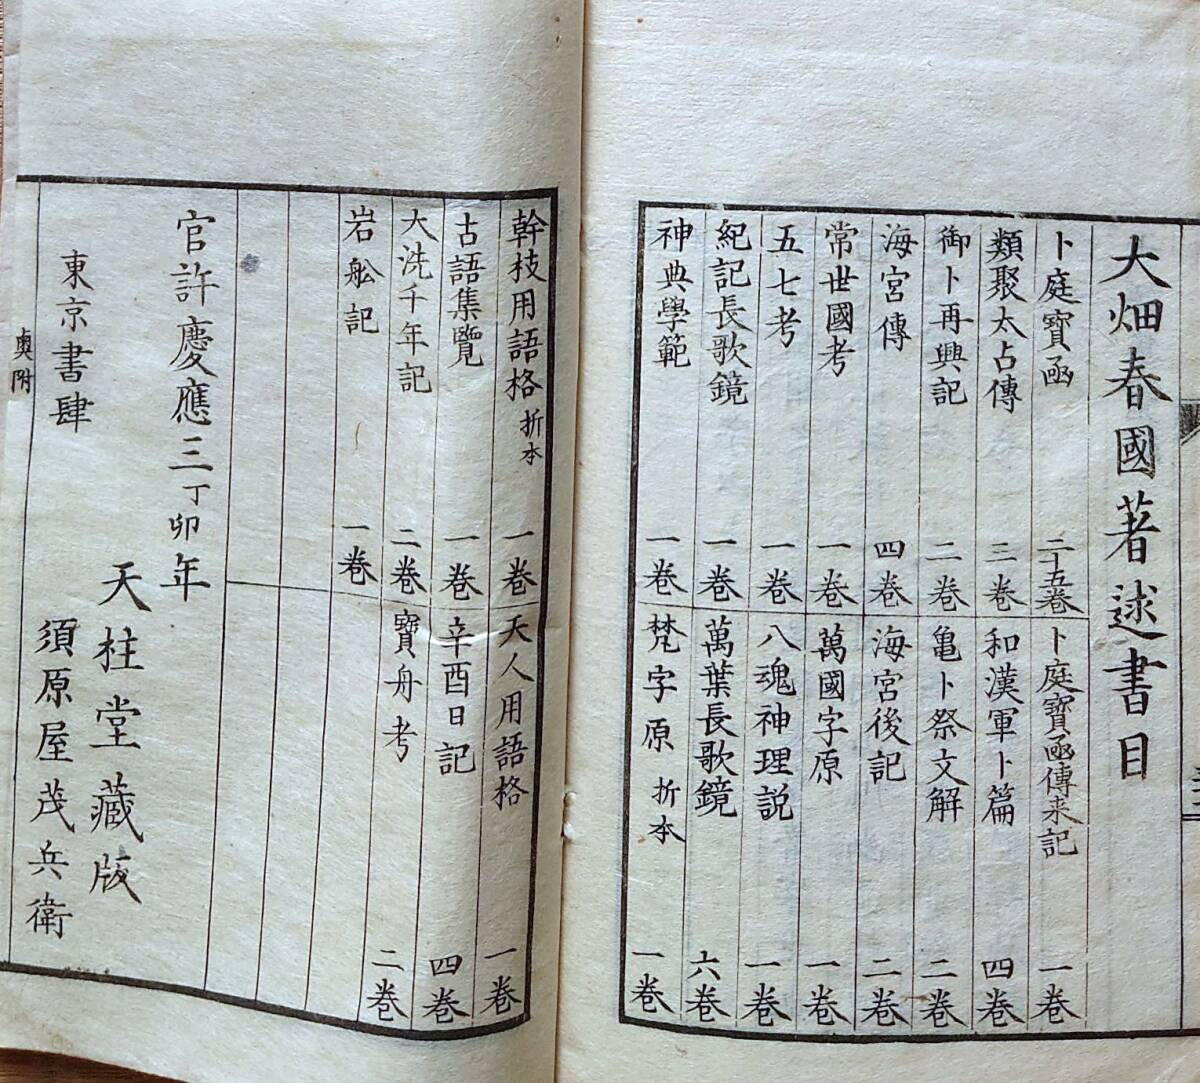 大畑春國著述書目
卜庭寶函 二十五卷
卜庭寶函傳来記 一卷
類聚太占傳 三卷
和漢軍卜篇 四卷
御卜再興記 二卷
亀卜祭文解 二卷
海宮傳 四卷
海宮後記 二卷
常世國考 一卷
萬國字原 一卷
五七考 一卷
八魂神理説 一卷
紀記長歌鏡 一卷
萬葉長歌鏡 六卷
神典學範 一卷
梵字原 折本 一卷
幹枝用語格 折本 一卷
天人用語格 一卷
古語集覽 一卷
辛酉日記 四卷
大洗千年記 二卷
寶舟考 二卷
岩舩記 一卷
官許慶應三丁卯年
天柱堂藏版
東京書肆
須原屋茂兵衛
奥附